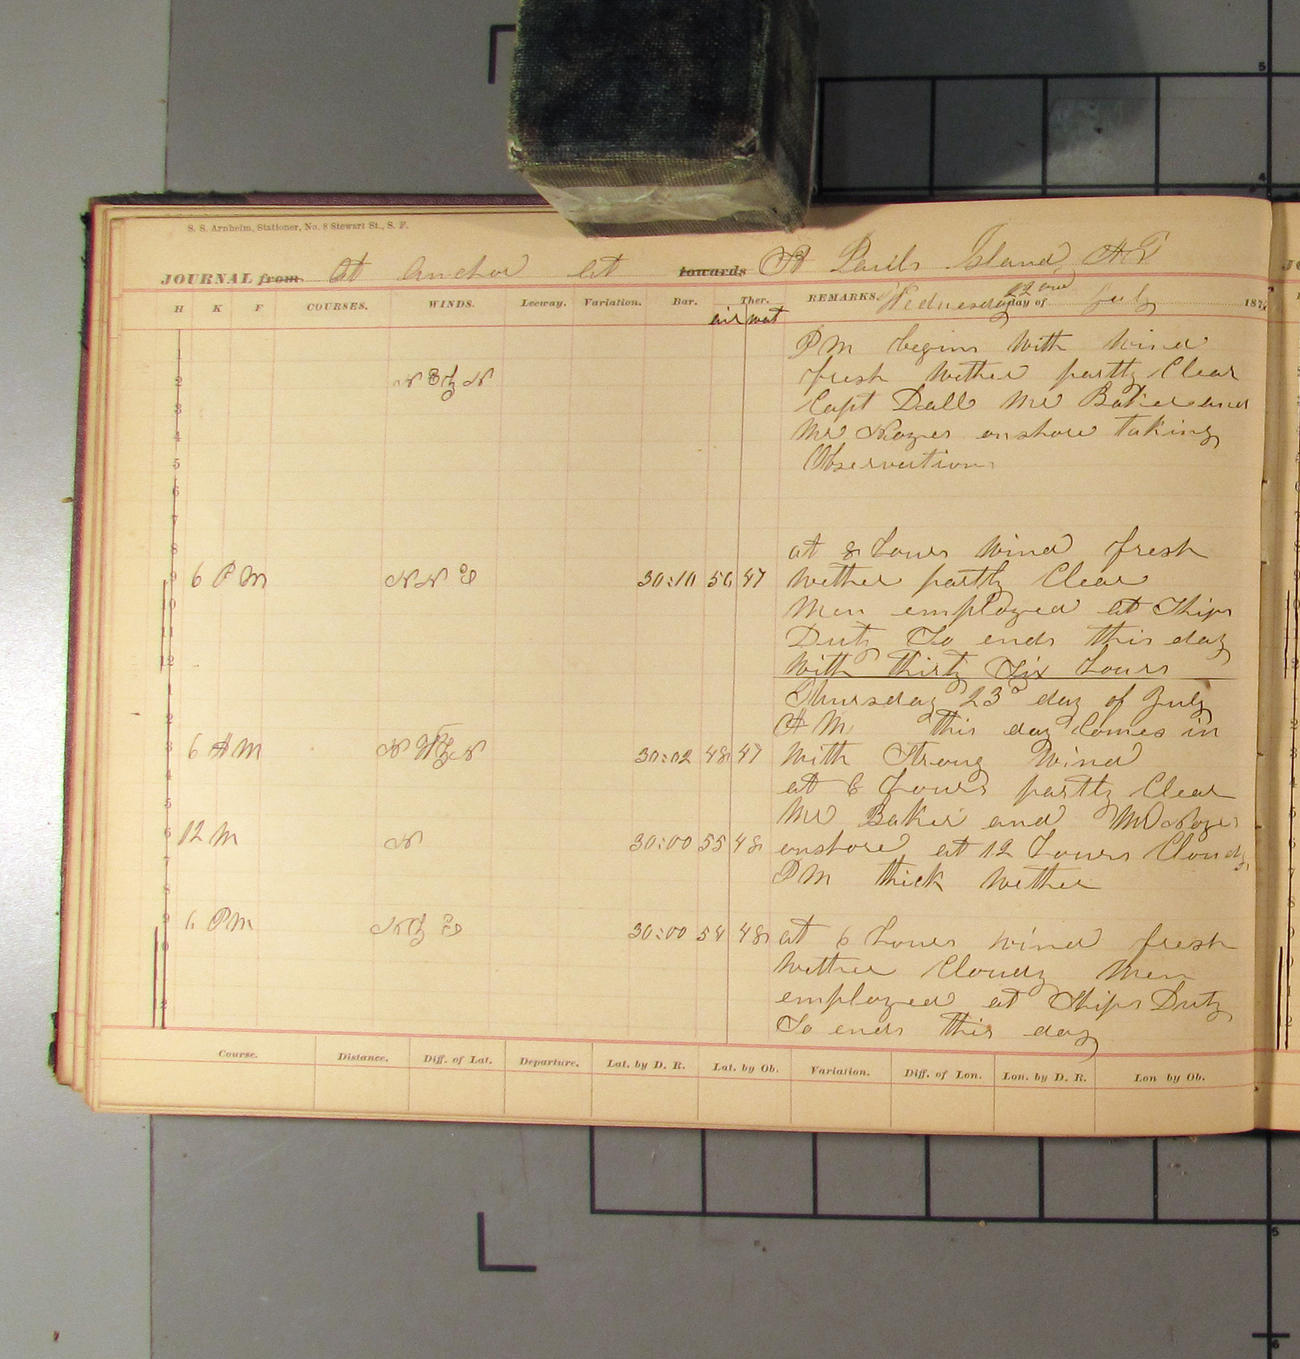 S. S. Arnheim, Stationer, No. 8 Stewart St., S. F.
JOURNAL from At anchor at towards St Pauls Island, A T
H K F COURSES. WINDS. Leeway. Variation. Bar. Ther. REMARKS. Wednesday 22 ond day of July 187
air wat
1
2 N E by N
3
4
5
6
7
8
9 6 P M N N E 30:10 50 47
10
11
12
1
2
3 6 A M N W by N 30:02 48 47
4
5
6 12 M N 30:00 55 48
7
8
9 6 P M N by E 30:00 54 48
P M begins with wind
fresh wether partly Clear
Capt Dall Mr Baker and
Mr Noyes onshore taking
Observation
at 8 hours wind fresh
wether partly Clear
Men employed at Ships
Duty So ends this day
with thirty six hours
Thursday 23d day of July
A M this day Comes in
with Strong wind
at 6 hours partly Clear
Mr Baker and Mr Noyes
onshore at 12 hours Cloudy
P M thick wether
at 6 hours wind fresh
wether Cloudy Men
employed at Ships Duty
So ends this day
Course. Distance. Diff. of Lat. Departure. Lat. by D. R. Lat. by Ob. Variation. Diff. of Lon. Lon. by D. R. Lon by Ob.